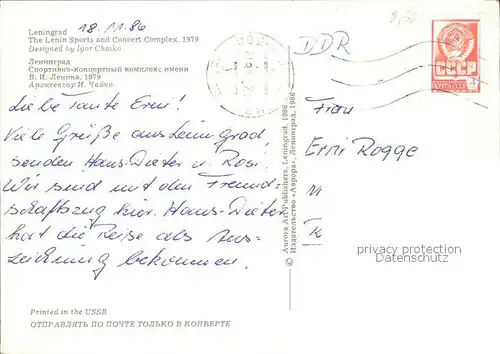 Leningrad 18.11.86
The Lenin Sports and Concert Complex. 1979
Designed by Igor Chaiko
Ленинград
Спортивно-концертный комплекс имени
В. И. Ленина. 1979
Архитектор И. Чайко
Liebe Tante Erni!
Viele Grüße aus Leningrad
senden Hans-Dieter u. Rosi.
Wir sind mit dem Freund-
schaftszug hier. Hans-Dieter
hat die Reise als Aus-
zeichnung bekommen.
Printed in the USSR
ОТПРАВЛЯТЬ ПО ПОЧТЕ ТОЛЬКО В КОНВЕРТЕ
Aurora Art Publishers, Leningrad, 1986
© Издательство «Аврора», Ленинград, 1986
DDR
СССР
Frau
Erni Rogge
privacy protection
Datenschutz